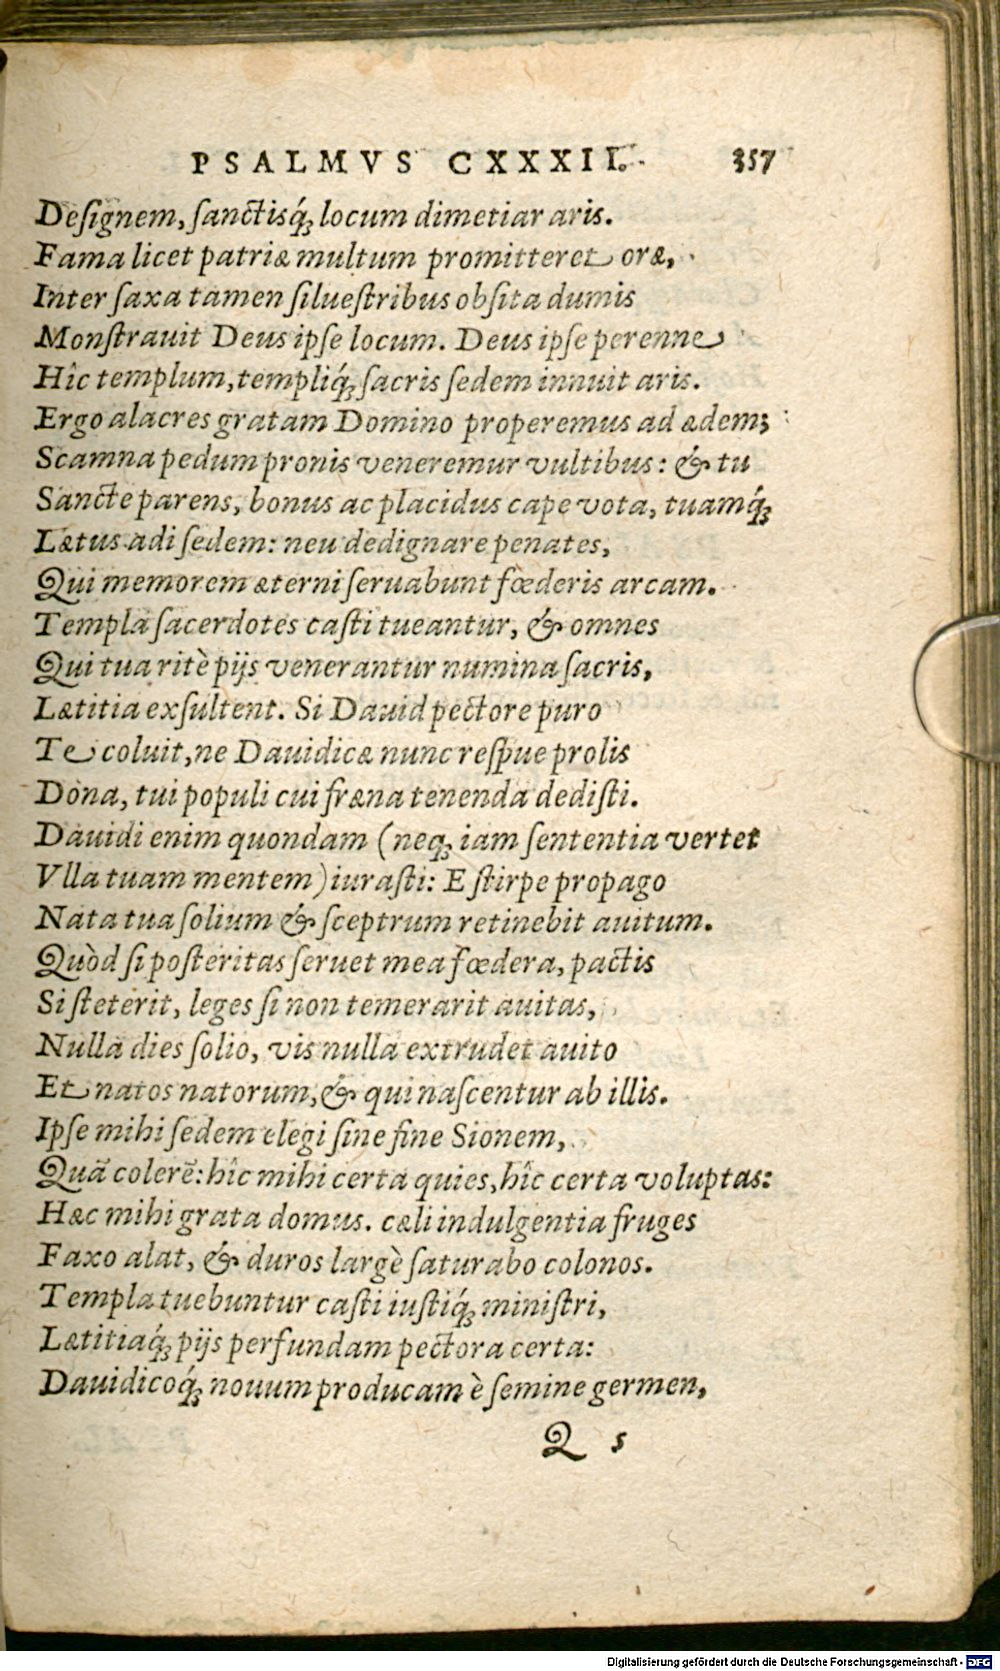 PSALMVS CXXXII. 357
Deſignem, ſanctisq́; locum dimetiar aris.
Fama licet patriæ multum promitteret oræ,
Inter ſaxa tamen ſilueſtribus obſita dumis
Monſtrauit Deus ipſe locum. Deus ipſe perenne
Hîc templum, templiq́; ſacris ſedem innuit aris.
Ergo alacres gratam Domino properemus ad ædem;
Scamna pedum pronis veneremur vultibus: & tu
Sancte parens, bonus ac placidus cape vota, tuamq́;
Lætus adi ſedem: neu dedignare penates,
Qui memorem æterni ſeruabunt fœderis arcam.
Templa ſacerdotes caſti tueantur, & omnes
Qui tua ritè pijs venerantur numina ſacris,
Lætitia exſultent. Si Dauid pectore puro
Te coluit, ne Dauidicæ nunc reſpue prolis
Dona, tui populi cui fræna tenenda dediſti.
Dauidi enim quondam (neq; iam ſententia vertet
Vlla tuam mentem) iuraſti: E ſtirpe propago
Nata tua ſolium & ſceptrum retinebit auitum.
Quòd ſi poſteritas ſeruet mea fœdera, pactis
Si ſteterit, leges ſi non temerarit auitas,
Nulla dies ſolio, vis nulla extrudet auito
Et natos natorum, & qui naſcentur ab illis.
Ipſe mihi ſedem elegi ſine fine Sionem,
Quã colerẽ: hîc mihi certa quies, hîc certa voluptas:
Hæc mihi grata domus. cæli indulgentia fruges
Faxo alat, & duros largè ſaturabo colonos.
Templa tuebuntur caſti iuſtiq́; miniſtri,
Lætitiaq́; pijs perfundam pectora certa:
Dauidicoq́; nouum producam è ſemine germen,
Q 5
Digitalisierung gefördert durch die Deutsche Forschungsgemeinschaft - DFG